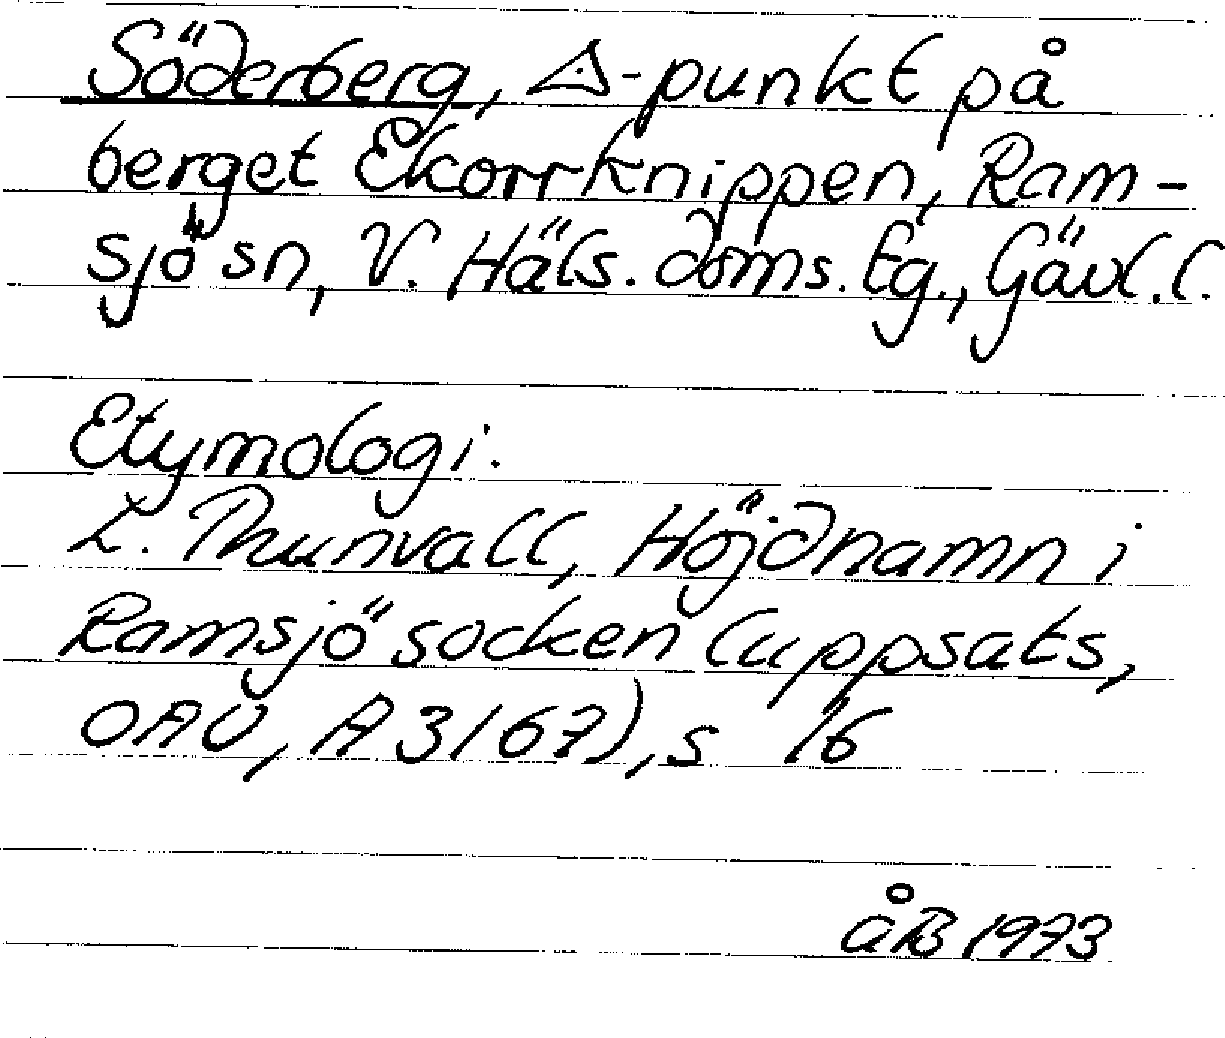 Söderberg, △-punkt på
berget Ekorrknippen, Ram-
sjö sn, V. Häls. doms. tg., Gävl.l.
Etymologi:
L. Thunvall, Höjdnamn i
Ramsjö socken (uppsats,
OAU, A 3167), s 16
åB 1973